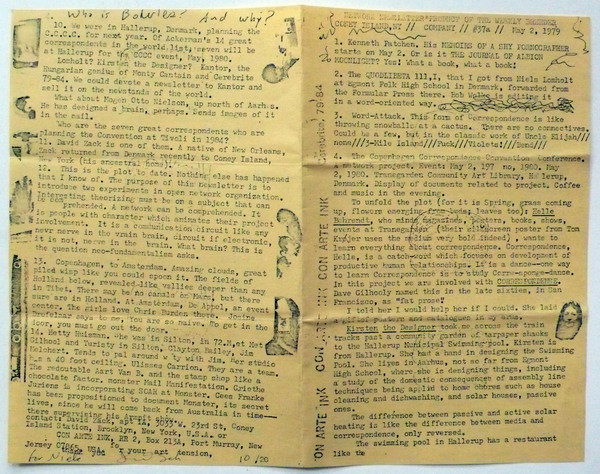 Who is Bowles? And why?
10. We were in Hallerup, Denmark, planning the
C.C.C.C. for next year. Of Ackerman's 14 great
correspondents in the world list, seven will be
at Hallerup for the CCCC event, May, 1980.
Lomholt? Kirsten the Designer? Kantor, the
Hungarian genius of Monty Cantsin and Cerebrite
79-84. We could devote a newsletter to Kantor and
sell it on the newstands of the world.
What about Mogen Otto Nielsen, up north of Aarhus.
He has designed a brain, perhaps. Sends images of it
in the mail.
Who are the seven great correspondents who are
planning the Convention at Tivoli in 1984?
11. David Zack is one of them. A native of New Orleans,
back returned from Denmark recently to Coney Island,
New York (his ancestral home).
12. This is the plot to date. Nothing else has happened
that I know of. The purpose of this newsletter is to
introduce two experiments in open network organisation.
Interesting theorizing must be on a subject that can
be
Prohended. A network can be comprehended. It
is people with character which animates their project
involvement. It is a communication circuit like any
nevr nerve in the vrain brain, circuit if electronic,
it is not, nerve in the brain. What brain? This is
the question noo-fundamentalism asks.
13. Copenhagen, to Amsterdam. Amazing clouds, great
piled wisp like you could spoon it. The fields of
Holland below, revealed-like vallies deeper than any
in Tibet. There may be no canals on Mars, but there
sure are in Holland. At Amsterdam, De Appel, an event
center. The girls love Chris Burden there. Josine
Drofelaar says to me, you are so naive. To get in the
door, you must go out the door.
14. Betty Huisman. She was in Silton, in 72. Met Nat
Gilhool and Variety in Silton, Clayton Bailey, Jim
Melchert. Tends to pal around with Jim. Her studio
has a 40 foot ceiling. Ulisses Carrion. They are a team.
The redoutable Aart Van B, and the stamp shop like a
chocolate factor. monster Mail Manifestation. Grietha
Juriens is incorporating NOAH at Monster. Cees Franke
has been propositioned to document Monster, its secret
lives, since he will come back from Australia in time---
there supervising his Arppit show.
contact: David Zack, apt 1a, 3033 W. 23rd St, Coney
Island Station, Brooklyn, New York, U.S.A. or
CON ARTE INK, RR 2, Box 213A, Port Murray, New
Jersey 0786
thank you for your art tension,
for Niels
10/20
NETWORK NEWSLETTER
CONEY ISLAND, NY // COMPANY // #37a // May 2, 1979
1. Kenneth Patchen. His MEMOIRS OF A SHY PORNOGRAPHER
starts on May 2. Or is it THE JOURNAL OF ALBION
MOONLIGHT? Yes! What a book, what a book!
2. THE QUODLIBETA 111,I, that I got from Niels Lomholt
at Egmont Folk High School in Denmark, forwarded from
the Formular Press there, Bob Wales is sitting
in a word-oriented way.
3. Word-Attack. This form of Correspondence is like
throwing snowballs at a cactus. There are no connectives.
Could be a few, but in the classic work of Uncle Elijah///
none///3-Mile Island///Fuck///Violets!///Bend///
4. The Copenhagen Correspondence Convention Conference.
A network project. Events May 2, 197 no, 1980, May
2, 1980. Transgarden Community Art Library, Hallerup,
Denmark. Display of documents related to project. Coffee
and music in the evening.
To unfold the plot (for it is Spring, grass coming
up, flowers emerging from weeds, leaves too): Helle
Buhrandt, who minds magazines, posters, books, shows,
events at Transgarden (their silkscreen poster from Tom
Krojer uses the medium very bold indeed), wants to
learn everything about correspondence. Correspondence,
Helle, is a catch-word which focuses on development of
productive human relationships. It's a dance---one way
to learn Correspondence is to study Corre-sponge-dance.
In this project we are involved with CORRESPONDENCE.
Dave Gilhooly named this in the late sixties, in San
Francisco, as "fat prose"
I told her I would help her if I could. She laid
out posters and catalogues in 29 arms.
Kirsten the Designer took me across the train
tracks past a community garden of tarpaper shacks
to the Hallerup Municipal Swimming pool. Kirsten is
from Hallerup. She had a hand in designing the Swimming
Pool. She lives in Aarhus, not so far from Egmont
High School, where she is designing things, including
a study of the domestic consequences of assembly line
techniques being applied to home chores such as house
cleaning and dishwashing, and solar houses, passive
ones.
The difference between passive and active solar
heating is like the difference between media and
correspondence, only reversed.
The swimming pool in Hallerup has a restaurant
like th
CON ARTE INK CON ARTE INK CON ARTE INK
79-84